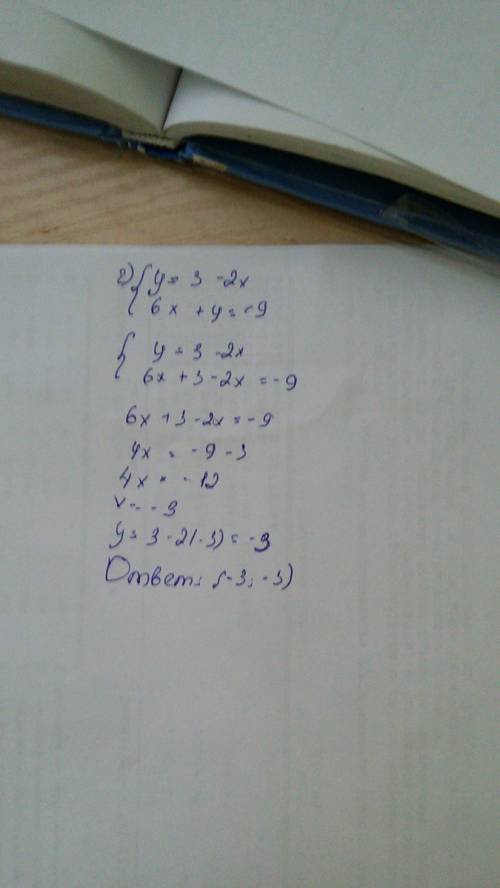 г) { y = 3 - 2x
6x + y = -9
{ y = 3 - 2x
6x + 3 - 2x = -9
6x + 3 - 2x = -9
4x = -9 - 3
4x = -12
x = -3
y = 3 - 2(-3) = -3
Ответ: (-3; -3)